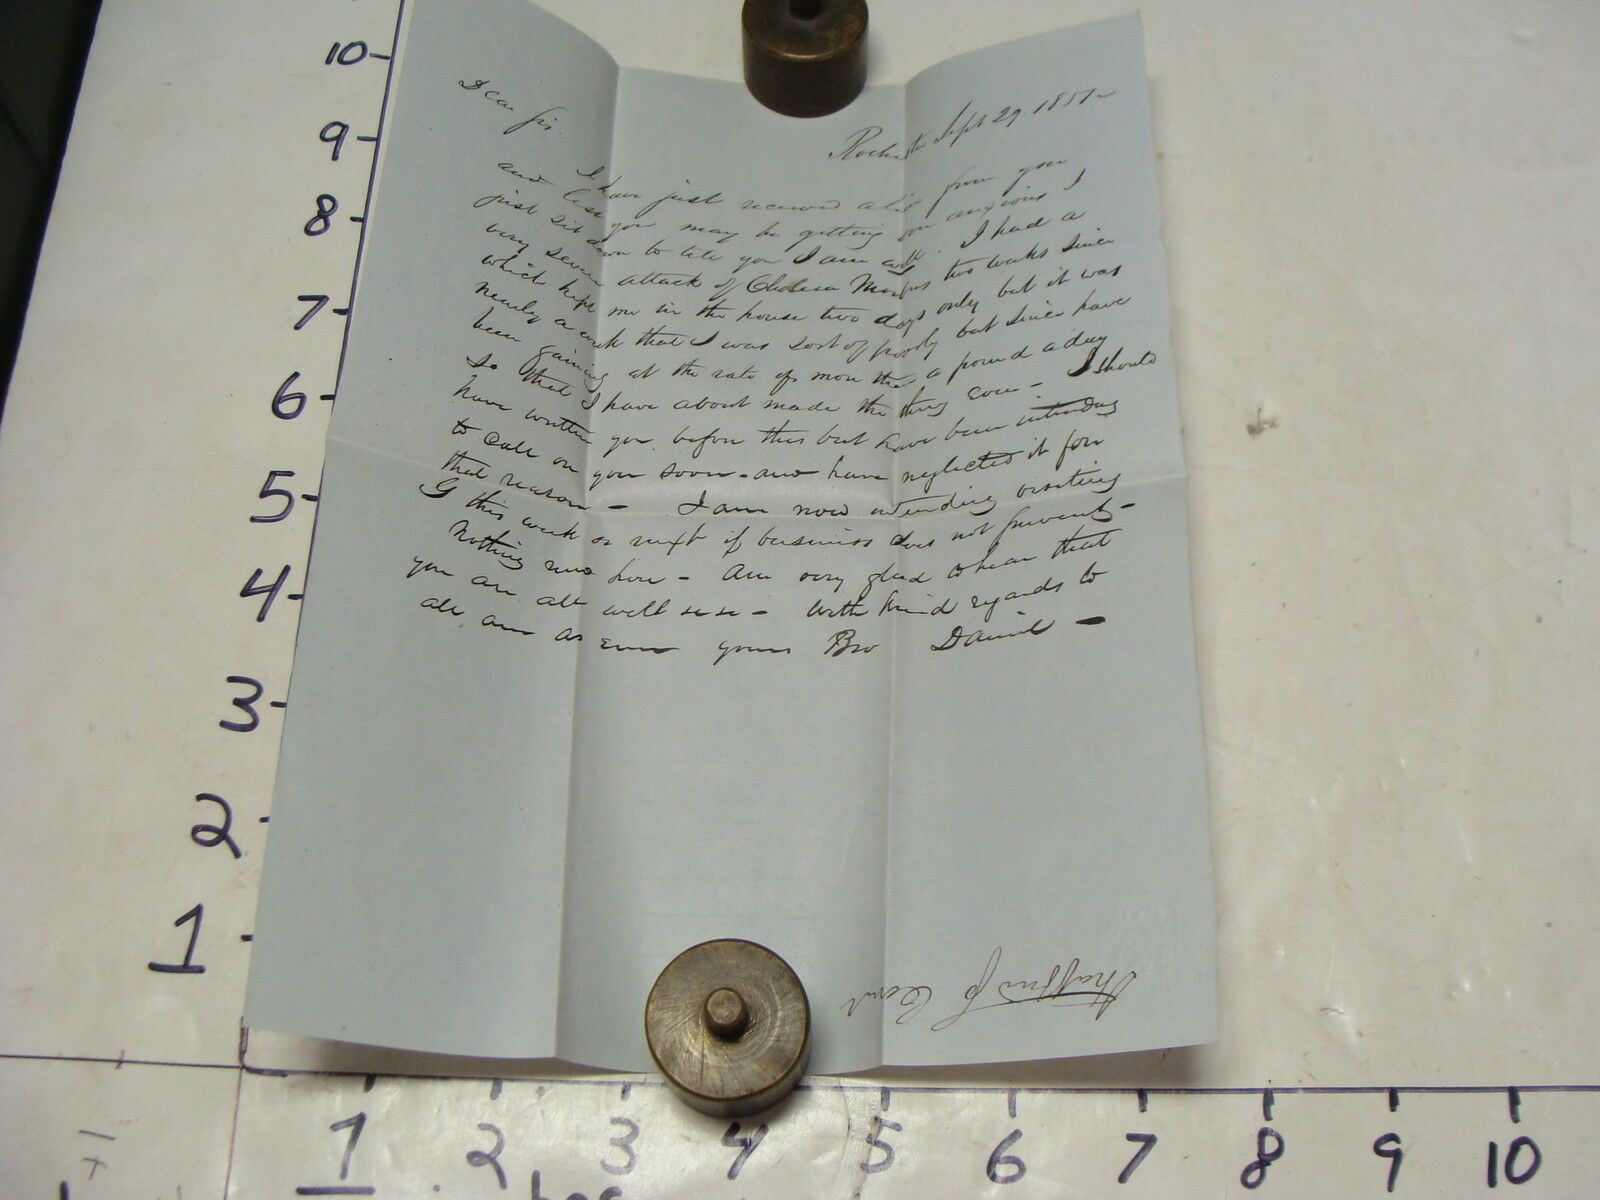 Rochester Sept 29 1851
Dear Sir.
I have just received a let from you
and lest you may be getting over anxious I
just sit down to tell you I am well. I had a
very severe attack of Cholera Morbus two weeks since
which kept me in the house two days only but it was
nearly a week that I was sort of poorly but since have
been gaining at the rate of more than a pound a day
so that I have about made the thing even - I should
have written you before this but have been intending
to call on you soon - and have neglected it for
that reason - I am now intending visiting
G this week or next if business does not prevent -
Nothing new here - Am very glad to hear that
you are all well - With kind regards to
all am as ever yours Bro Daniel -
10
9
8
7
6
5
4
3
2
1
1 2 3 4 5 6 7 8 9 10